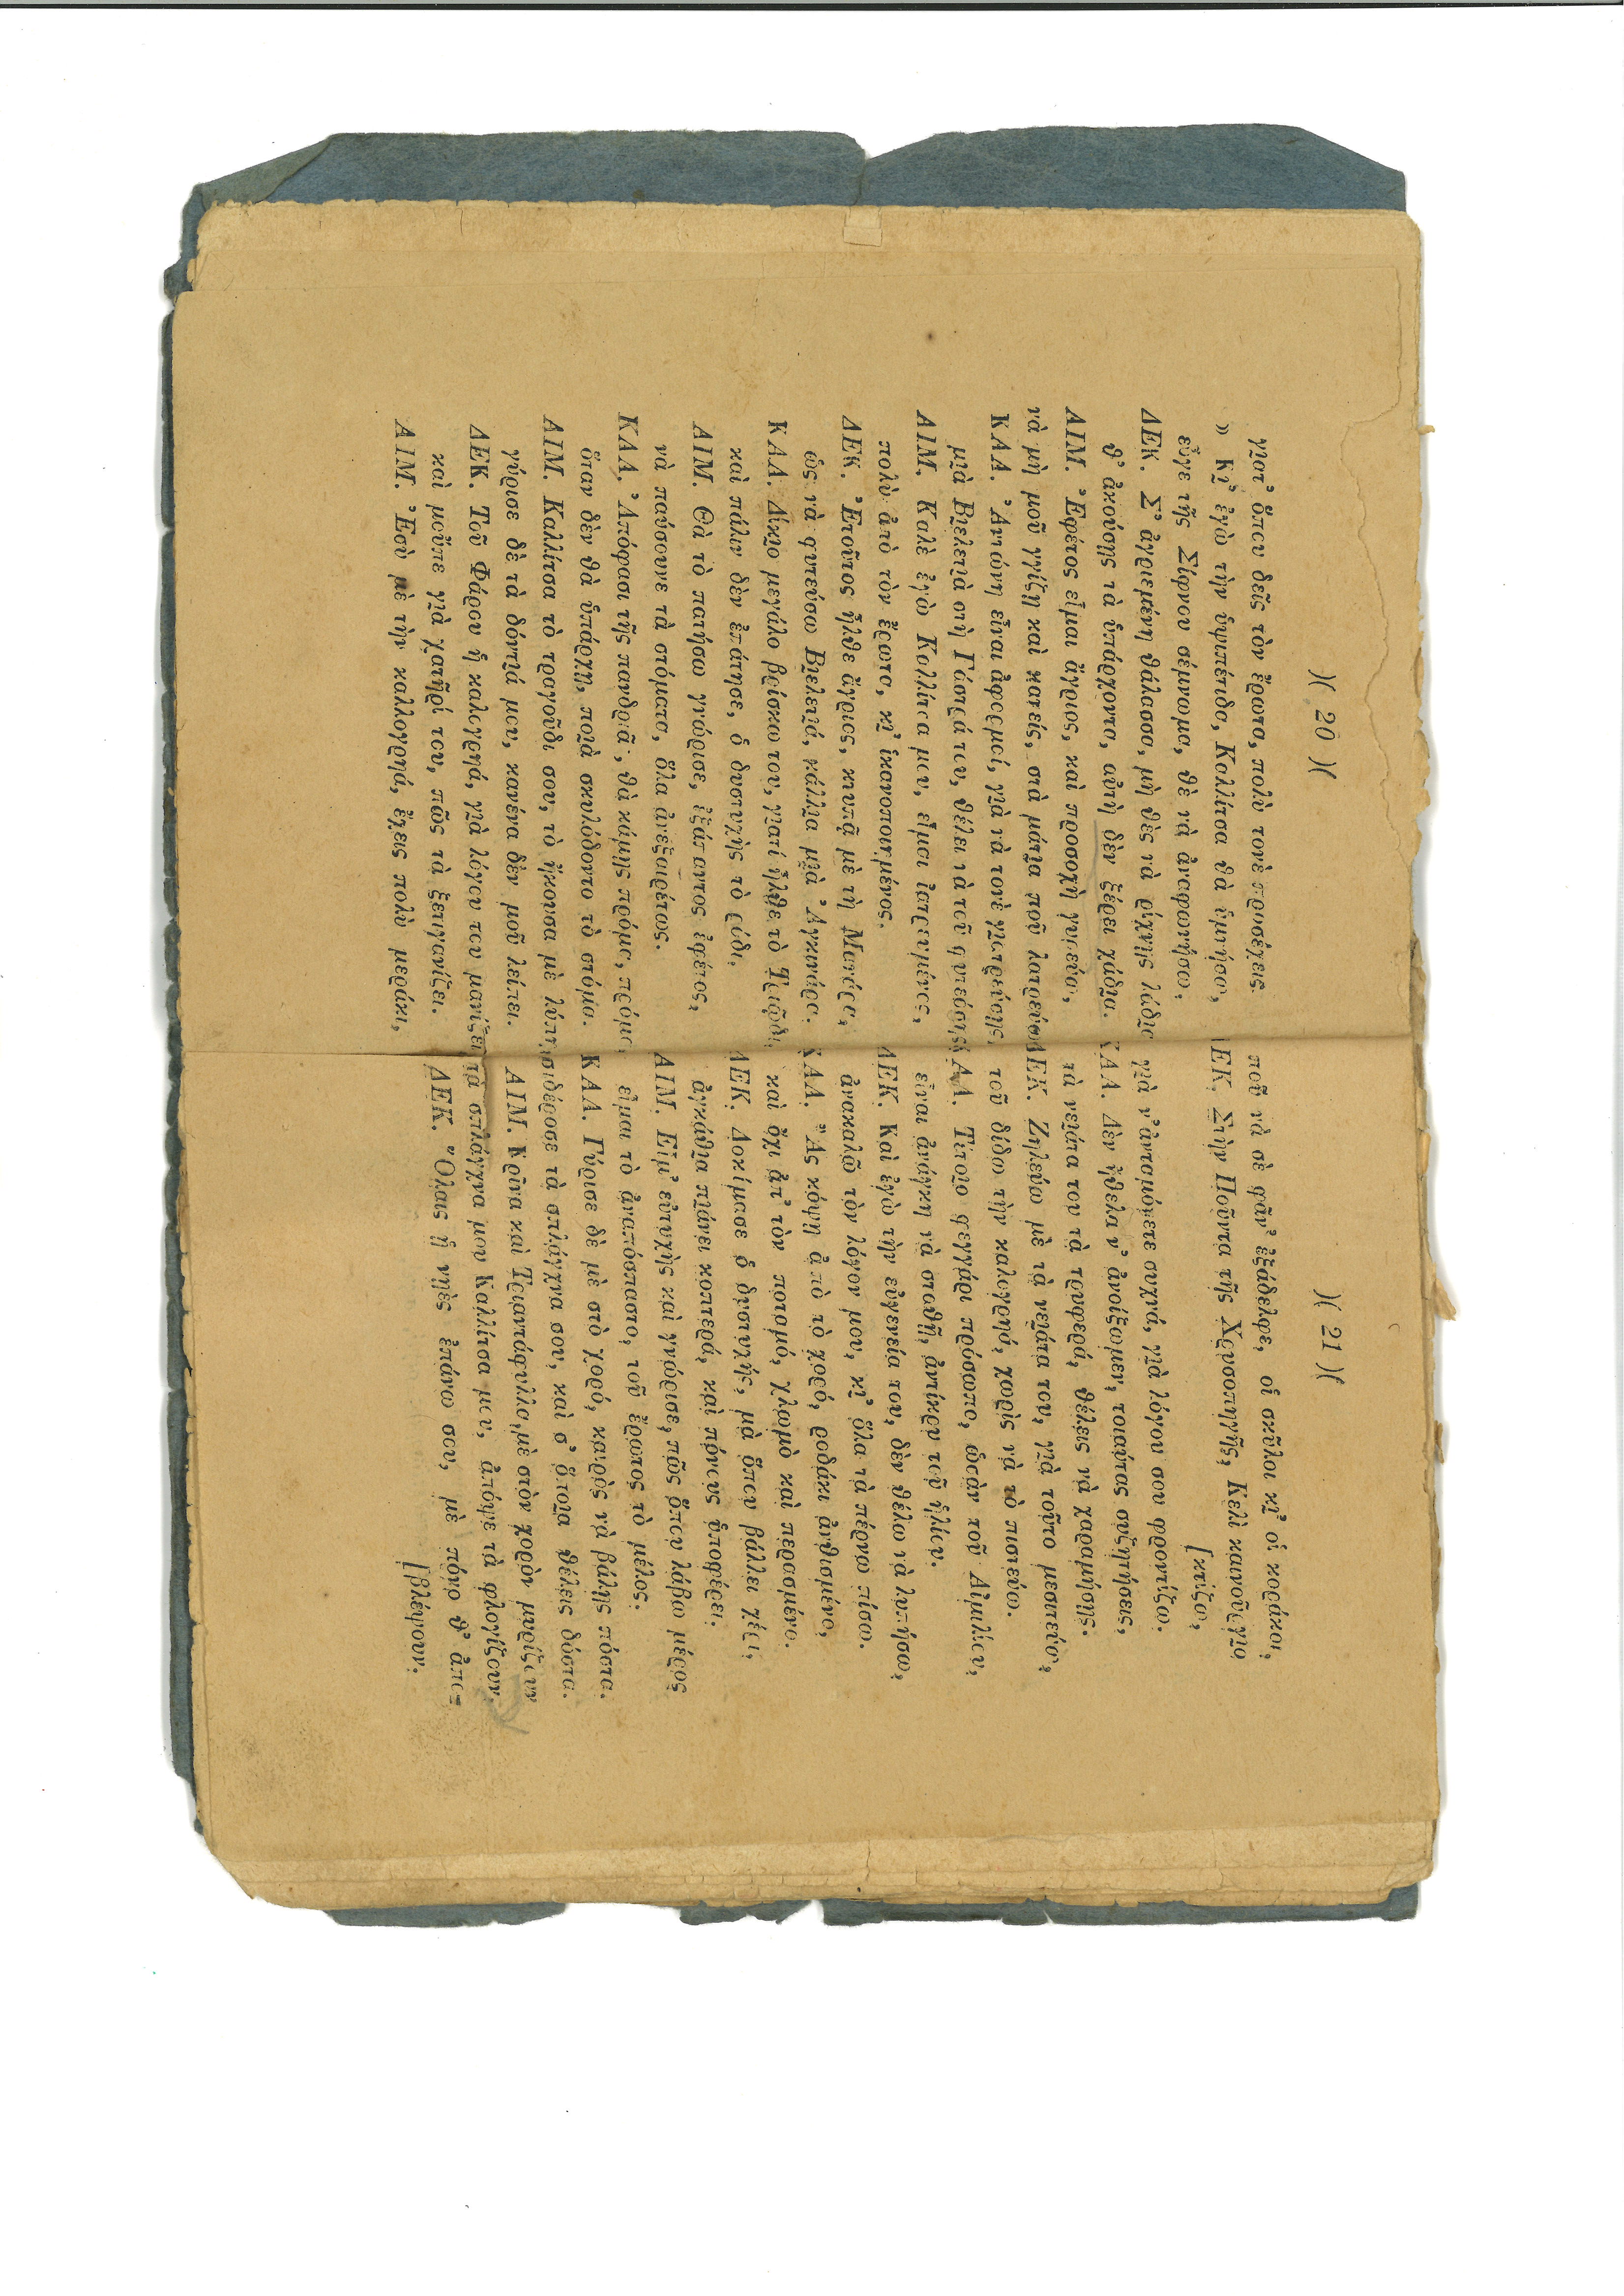 )( 20 )(
γιατ' ὅπου δεῖς τὸν ἔρωτα, πολὺ τονὲ προσέχεις.
» κι' ἐγὼ τὴν ὑψιπέτιδα, Καλλίτσα θὰ ὑμνήσω,
εὖγε τῆς Σίφνου σέμνωμα, θὲ νὰ ἀναφωνήσω,
ΛΕΚ. Σ' ἀγριεμένη θάλασσα, μὴ θὲς νὰ ρίχνῃς λάδια
θ' ἀκούσῃς τὰ ὑπάρχοντα, αὐτὴ δὲν ξέρει χάδια.
ΑΙΜ. Ἐφέτος εἶμαι ἄγριος, καὶ προσοχὴ γυρεύω,
νὰ μὴ μοῦ γγίζῃ καὶ κανείς, στὰ μάτια ποῦ λατρεύω
ΚΑΛ. Ἀντώνη εἶναι ἀφορμοί, γιὰ νὰ τονὲ γιατρεύσῃς,
μιὰ Βιελετιὰ στὴ Γάστρά του, θέλει νὰ τοῦ φυτεύσῃς
ΑΙΜ. Καλὲ ἐγὼ Καλλίτσα μου, εἶμαι ἰατρευμένος,
πολὺ ἀπὸ τὸν ἔρωτα, κι' ἱκανοποιημένος.
ΛΕΚ. Ἐτοῦτος ἦλθε ἄγριος, κτυπᾷ μὲ τὴ
ὣς νὰ φυτεύσω Βιελετιά, κάλλια μιὰ Ἀγκινάρα.
ΚΑΛ. Δίκιο μεγάλο βρίσκω του, γιατί ἦλθε τὸ Τριῶδι
καὶ πάλιν δὲν ἐπάτησε, ὁ δυστυχὴς τὸ ζῶδι.
ΑΙΜ. Θὰ τὸ πατήσω γνώρισε, ἐξάπαντος ἐφέτος,
νὰ παύσουνε τὰ στόματα, ὅλα ἀνεξαιρέτως.
ΚΑΛ. Ἀπόφασι τῆς πανδρᾶς, θὰ κάμῃς πρόμα, πρόμα,
ὅταν δὲν θὰ ὑπάρχῃ, ποιὰ σκυλόδοντο τὸ στόμα.
ΑΙΜ. Καλλίτσα τὸ τραγοῦδι σου, τὸ ἤκουσα μὲ λύπη
γύρισε δὲ τὰ δόντιά μου, κανένα δὲν μοῦ λείπει.
ΛΕΚ. Τοῦ Φάρου ἡ καλογρηά, γιὰ λόγου του μανίζει
καὶ μοῦπε γιὰ χατῆρί του, πῶς τὰ ξετηγανίζει.
ΑΙΜ. Ἐσὺ μὲ τὴν καλλογρηά, ἔχεις πολὺ μεράκι,
)( 21 )(
ποῦ νὰ σὲ φᾶν' ἐξάδελφε, οἱ σκῦλοι κι' οἱ κοράκοι,
ΛΕΚ. Στὴν Ποῦντα τῆς Χρυσοπηγῆς, Κελὶ καινοῦργιο
[κτίζω,
γιὰ ν' ἀνταμόνετε συχνά, γιὰ λόγου σου φροντίζω.
ΚΑΛ. Δὲν ἤθελα ν' ἀνοίξωμεν, τοιαύτας συζητήσεις,
τὰ νειᾶτα του τὰ τρυφερά, θέλεις νὰ χαραμήσῃς.
ΛΕΚ. Ζηλεύω μὲ τὰ νειᾶτα του, γιὰ τοῦτο μεσιτεύω,
τοῦ δίδω τὴν καλογρηά, χωρὶς νὰ τὸ πιστεύω.
ΚΑΛ. Τέτοιο φεγγάρι πρόσωπο, ὡσὰν τοῦ Αἰμιλίου,
εἶναι ἀνάγκη νὰ σταθῇ, ἀντίκρυ τοῦ ἡλίου.
ΛΕΚ. Καὶ ἐγὼ τὴν εὐγενεία του, δὲν θέλω νὰ λυπήσω,
ἀνακαλῶ τὸν λόγον μου, κι' ὅλα τὰ πέρνω πίσω.
ΚΑΛ. Ἂς κόψῃ ἀπὸ τὸ χορό, ροδάκι ἀνθισμένο,
καὶ ὄχι ἀπ' τὸν ποταμό, χλωμὸ καὶ περασμένο.
ΛΕΚ. Δοκίμασε ὁ δυστυχής, μὰ ὅπου βάλλει χέρι,
ἀγκάθια πιάνει κοπτερά, καὶ πόνους ὑποφέρει.
ΑΙΜ. Εἶμ' εὐτυχὴς καὶ γνώρισε, πῶς ὅπου λάβω μέρος
εἶμαι τὸ ἀναπόσπαστο, τοῦ ἔρωτος τὸ μέλος.
ΚΑΛ. Γύρισε δὲ μὲ στὸ χορό, καιρὸς νὰ βάλῃς πόστα.
σιδέρωσε τὰ σπλάγχνα σου, καὶ σ' ὅποια θέλεις δόστα.
ΑΙΜ. Κρῖνα καὶ Τριαντάφυλλα, μὲ στὸν χορὸν μυρίζουν
τὰ σπλάγχνα μου Καλλίτσα μου, ἀπόψε τὰ φλογίζουν.
ΛΕΚ. Ὅλαις ᾑ νηὲς ἐπάνω σου, μὲ πόνο θ' ἀπο=
[βλέψουν.